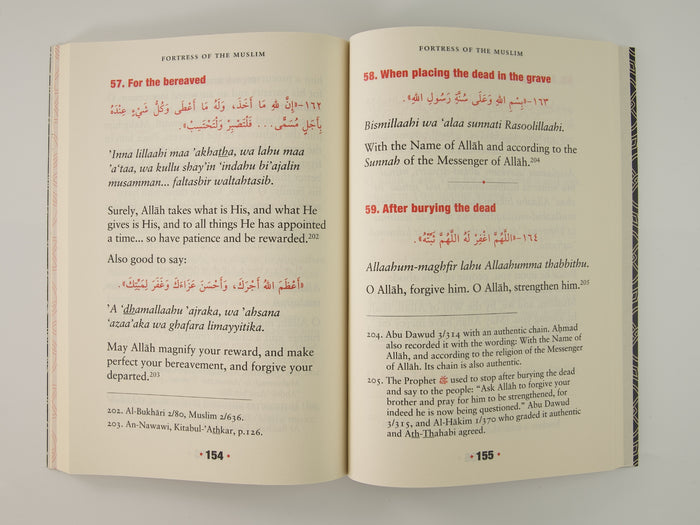 FORTRESS OF THE MUSLIM
57. For the bereaved
١٦٢-«إِنَّ لِلَّهِ مَا أَخَذَ، وَلَهُ مَا أَعْطَى وَكُلُّ شَيْءٍ عِنْدَهُ
بِأَجَلٍ مُسَمًّى... فَلْتَصْبِرْ وَلْتَحْتَسِبْ».
'Inna lillaahi maa 'akhatha, wa lahu maa
'a'taa, wa kullu shay'in 'indahu bi'ajalin
musamman... faltasbir waltahtasib.
Surely, Allāh takes what is His, and what He
gives is His, and to all things He has appointed
a time... so have patience and be rewarded.202
Also good to say:
«أَعْظَمَ اللَّهُ أَجْرَكَ، وَأَحْسَنَ عَزَاءَكَ وَغَفَرَ لِمَيِّتِكَ».
'A 'dhamallaahu 'ajraka, wa 'ahsana
'azaa'aka wa ghafara limayyitika.
May Allāh magnify your reward, and make
perfect your bereavement, and forgive your
departed.203
202. Al-Bukhāri 2/80, Muslim 2/636.
203. An-Nawawi, Kitabul-'Athkar, p.126.
• 154 •
FORTRESS OF THE MUSLIM
58. When placing the dead in the grave
١٦٣-«بِسْمِ اللَّهِ وَعَلَى سُنَّةِ رَسُولِ اللَّهِ».
Bismillaahi wa 'alaa sunnati Rasoolillaahi.
With the Name of Allāh and according to the
Sunnah of the Messenger of Allāh.204
59. After burying the dead
١٦٤-«اللَّهُمَّ اغْفِرْ لَهُ اللَّهُمَّ ثَبِّتْهُ».
Allaahum-maghfir lahu Allaahumma thabbithu.
O Allāh, forgive him. O Allāh, strengthen him.205
204. Abu Dawud 3/314 with an authentic chain. Ahmad
also recorded it with the wording: With the Name of
Allāh, and according to the religion of the Messenger
of Allāh. Its chain is also authentic.
205. The Prophet ﷺ used to stop after burying the dead
and say to the people: "Ask Allāh to forgive your
brother and pray for him to be strengthened, for
indeed he is now being questioned." Abu Dawud
3/315, and Al-Hākim 1/370 who graded it authentic
and Ath-Thahabi agreed.
• 155 •